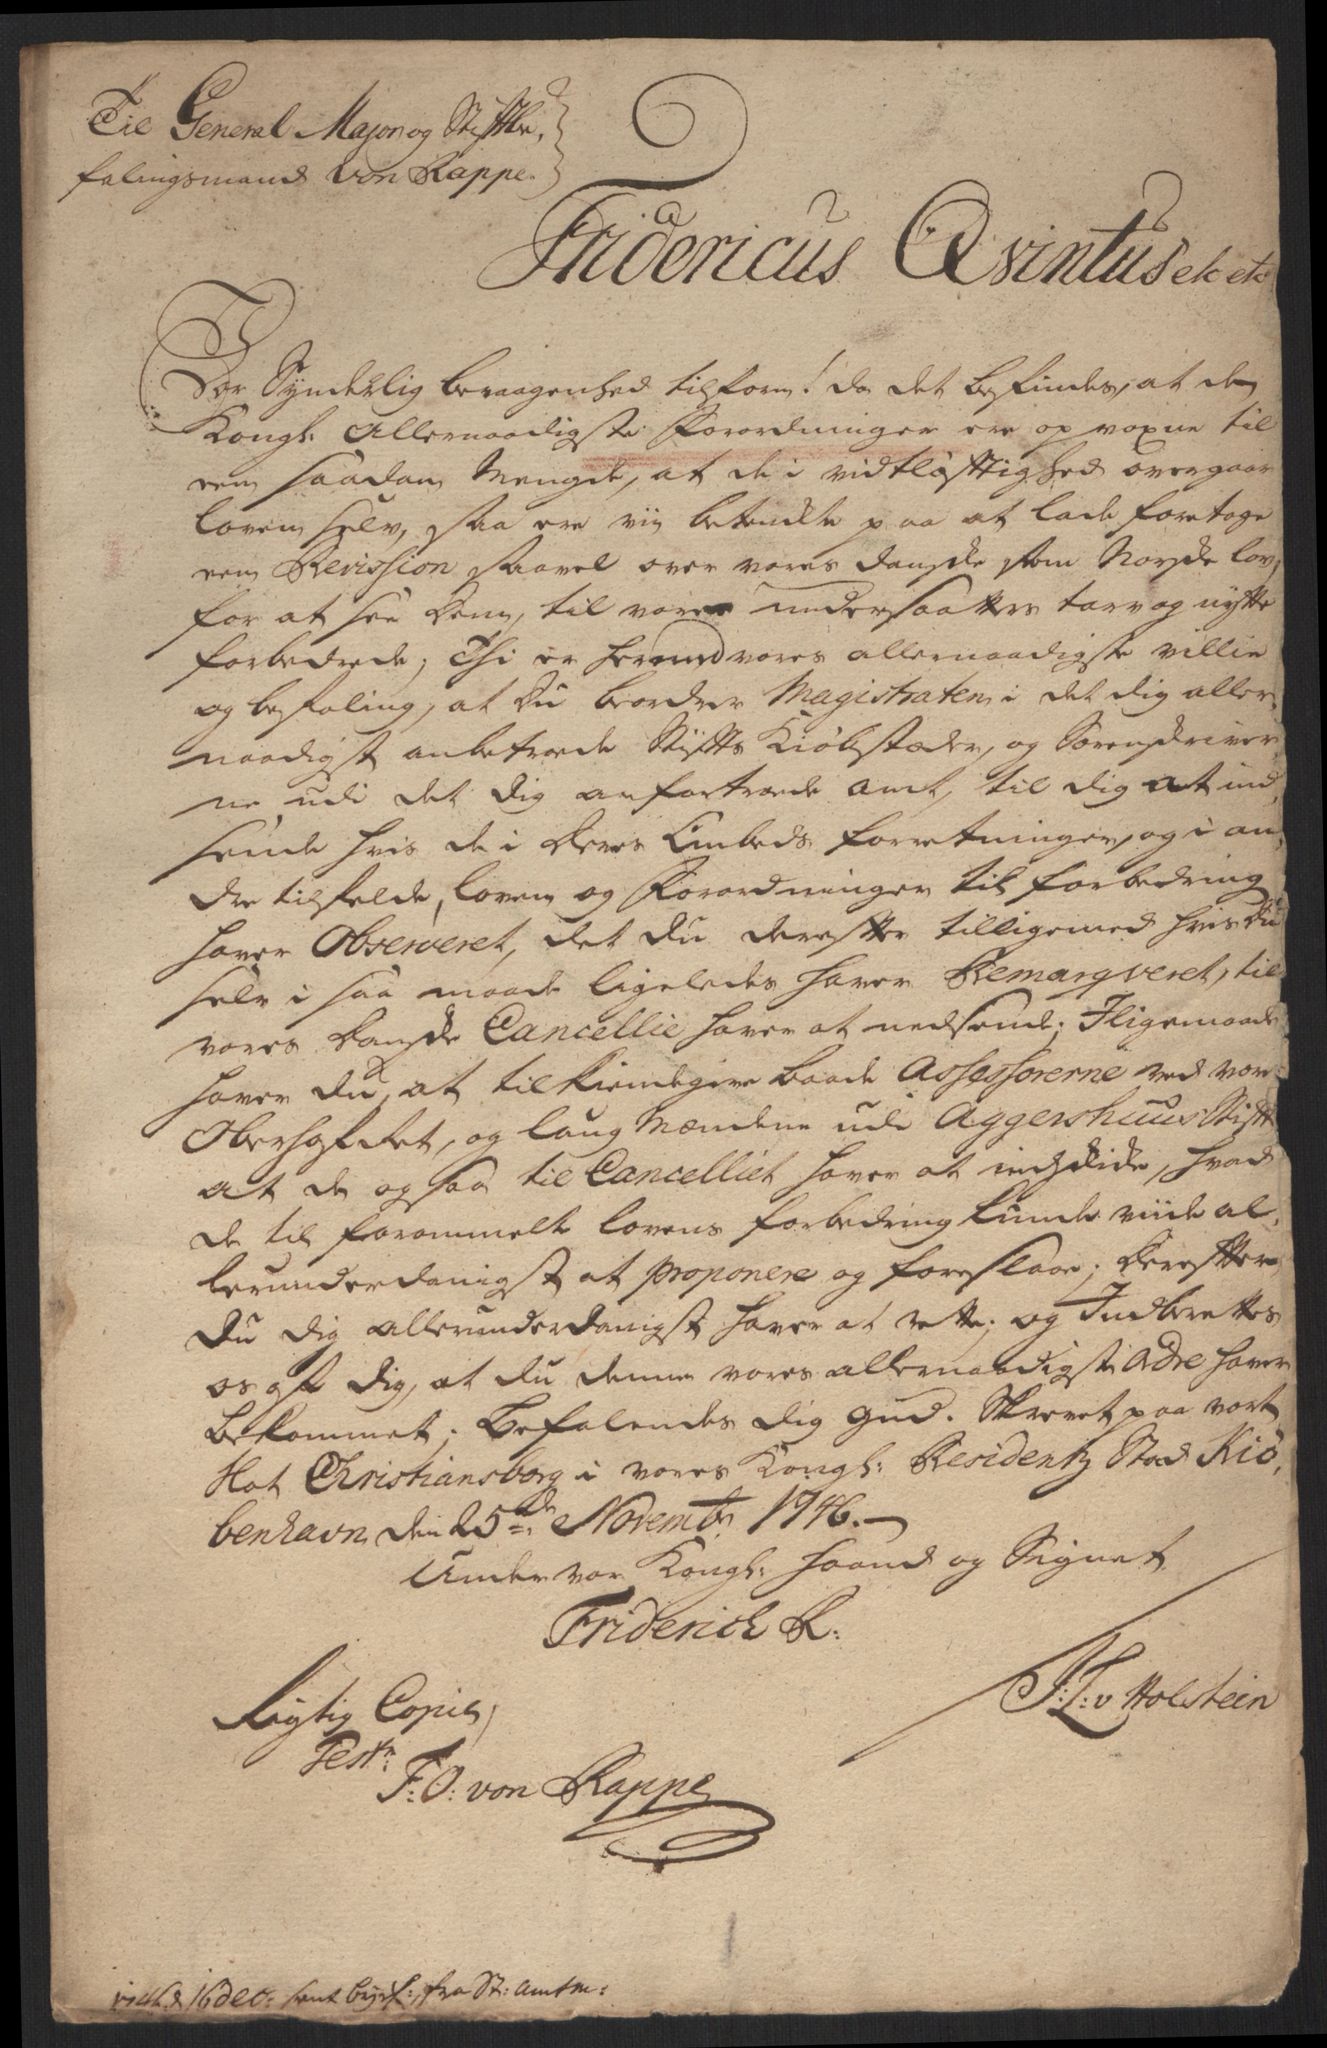 Til General Major og Stiftbe,
falingsmand von Rappe.
Fridericus Qvintus etc etc
Vor Synderlig bevaagenhed tilforn! da det befindes, at de
Kongl: Allernaadigste Forordninger ere op voxne til
een saadan Mengde, at de i vidtløftighed overgaar
loven selv, saa ere vii betenckte paa at lade foretage
een Revission saavel over vores danske som Norske lov,
for at see dem, til vore undersaatters tarv og nytte
forbedrede; Thi er hermed vores allernaadigste villie
og befaling, at du beordrer Magistraten i det dig aller,
naadigst anbetroede Stifts Kiøbstæder, og Sorenskriver,
ne udi det dig anfortroede amt, til dig at ind,
sende hvis de i deres Embeds forretninger, og i an,
dre tilfelde, loven og Forordninger til forbedring
haver Observeret, det du derefter tilligemed hvis du
selv i saa maade ligeledes haver Remarqveret, til
vores danske Cancellie haver at nedsende; Iligemaade
haver du, at tilkiendegive baade Assessorerne ved vor
Oberhofret, og laug Mændene udi Aggershuus Stift
at de ogsaa til Cancelliet haver at indskicke, hvad
de til forommelte lovens forbedring kunde viide al,
lerunderdanigst at proponere og foreslaae; derefter
du dig allerunderdanigst haver at rette; og Indberettes
os af dig, at du denne vores allernaadigste Ordre haver
bekommet; Befalendes dig Gud. Skrevet paa vort
Slot Christiansborg i vores Kongl: Residentz Stad Kiö,
benhavn den 25de Novembr 1746.
Under vor Kongl: Haand og Signet
Friderich R:
J: L: v Holstein
Rigtig Copie,
Test:
F: O: von Rappe
1746 d 16 dec: fra St: amtm: